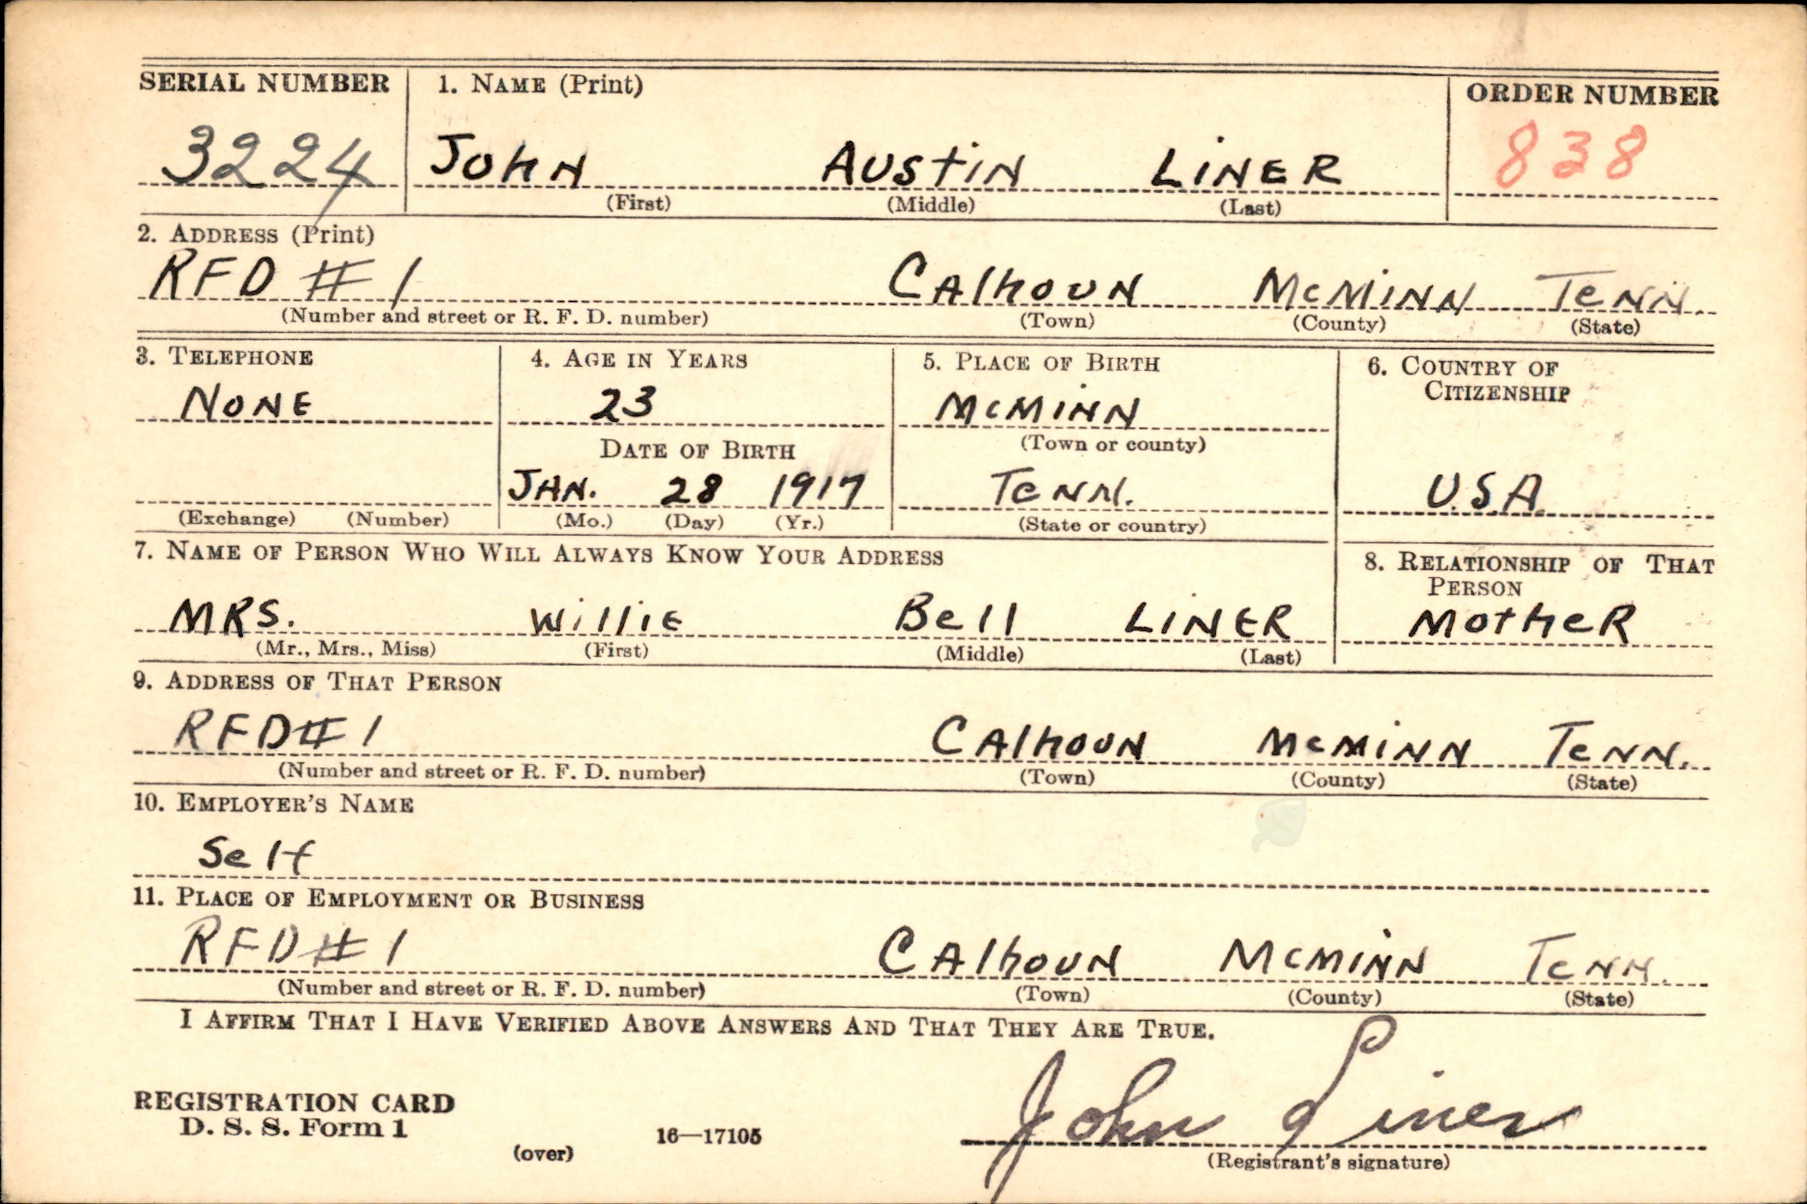 SERIAL NUMBER 1. NAME (Print) ORDER NUMBER
3224 JOHN AUSTIN LINER 838
(First) (Middle) (Last)
2. ADDRESS (Print)
RFD # 1 CALHOUN McMINN TENN.
(Number and street or R. F. D. number) (Town) (County) (State)
3. TELEPHONE 4. AGE IN YEARS 5. PLACE OF BIRTH 6. COUNTRY OF CITIZENSHIP
NONE 23 McMINN
DATE OF BIRTH (Town or county)
JAN. 28 1917 TENN. U.S.A.
(Exchange) (Number) (Mo.) (Day) (Yr.) (State or country)
7. NAME OF PERSON WHO WILL ALWAYS KNOW YOUR ADDRESS 8. RELATIONSHIP OF THAT PERSON
MRS. WILLIE BELL LINER MOTHER
(Mr., Mrs., Miss) (First) (Middle) (Last)
9. ADDRESS OF THAT PERSON
RFD # 1 CALHOUN McMINN TENN.
(Number and street or R. F. D. number) (Town) (County) (State)
10. EMPLOYER'S NAME
Self
11. PLACE OF EMPLOYMENT OR BUSINESS
RFD # 1 CALHOUN McMINN TENN.
(Number and street or R. F. D. number) (Town) (County) (State)
I AFFIRM THAT I HAVE VERIFIED ABOVE ANSWERS AND THAT THEY ARE TRUE.
REGISTRATION CARD
D. S. S. Form 1
(over) 16—17105 John Liner
(Registrant's signature)